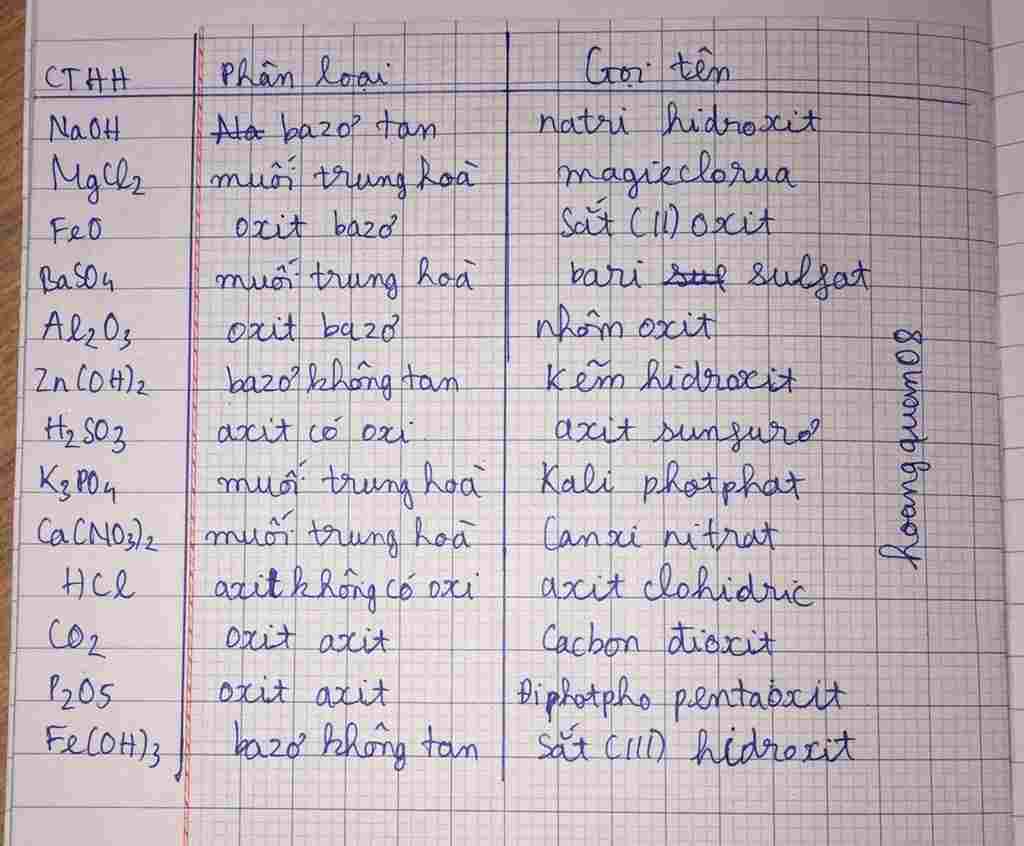 CTHH phân loại Gọi tên
NaOH Na bazơ tan natri hidroxit
MgCl2 muối trung hoà magieclorua
FeO oxit bazơ Sắt (II) oxit
BaSO4 muối trung hoà bari sulfat
Al2O3 oxit bazơ nhôm oxit
Zn(OH)2 bazơ không tan kẽm hidroxit
H2SO3 axit có oxi axit sunfurơ
K3PO4 muối trung hoà Kali photphat
Ca(NO3)2 muối trung hoà Canxi nitrat
HCl axit không có oxi axit clohidric
CO2 oxit axit Cacbon đioxit
P2O5 oxit axit Điphotpho pentaoxit
Fe(OH)3 bazơ không tan Sắt (III) hidroxit
hoangquan08